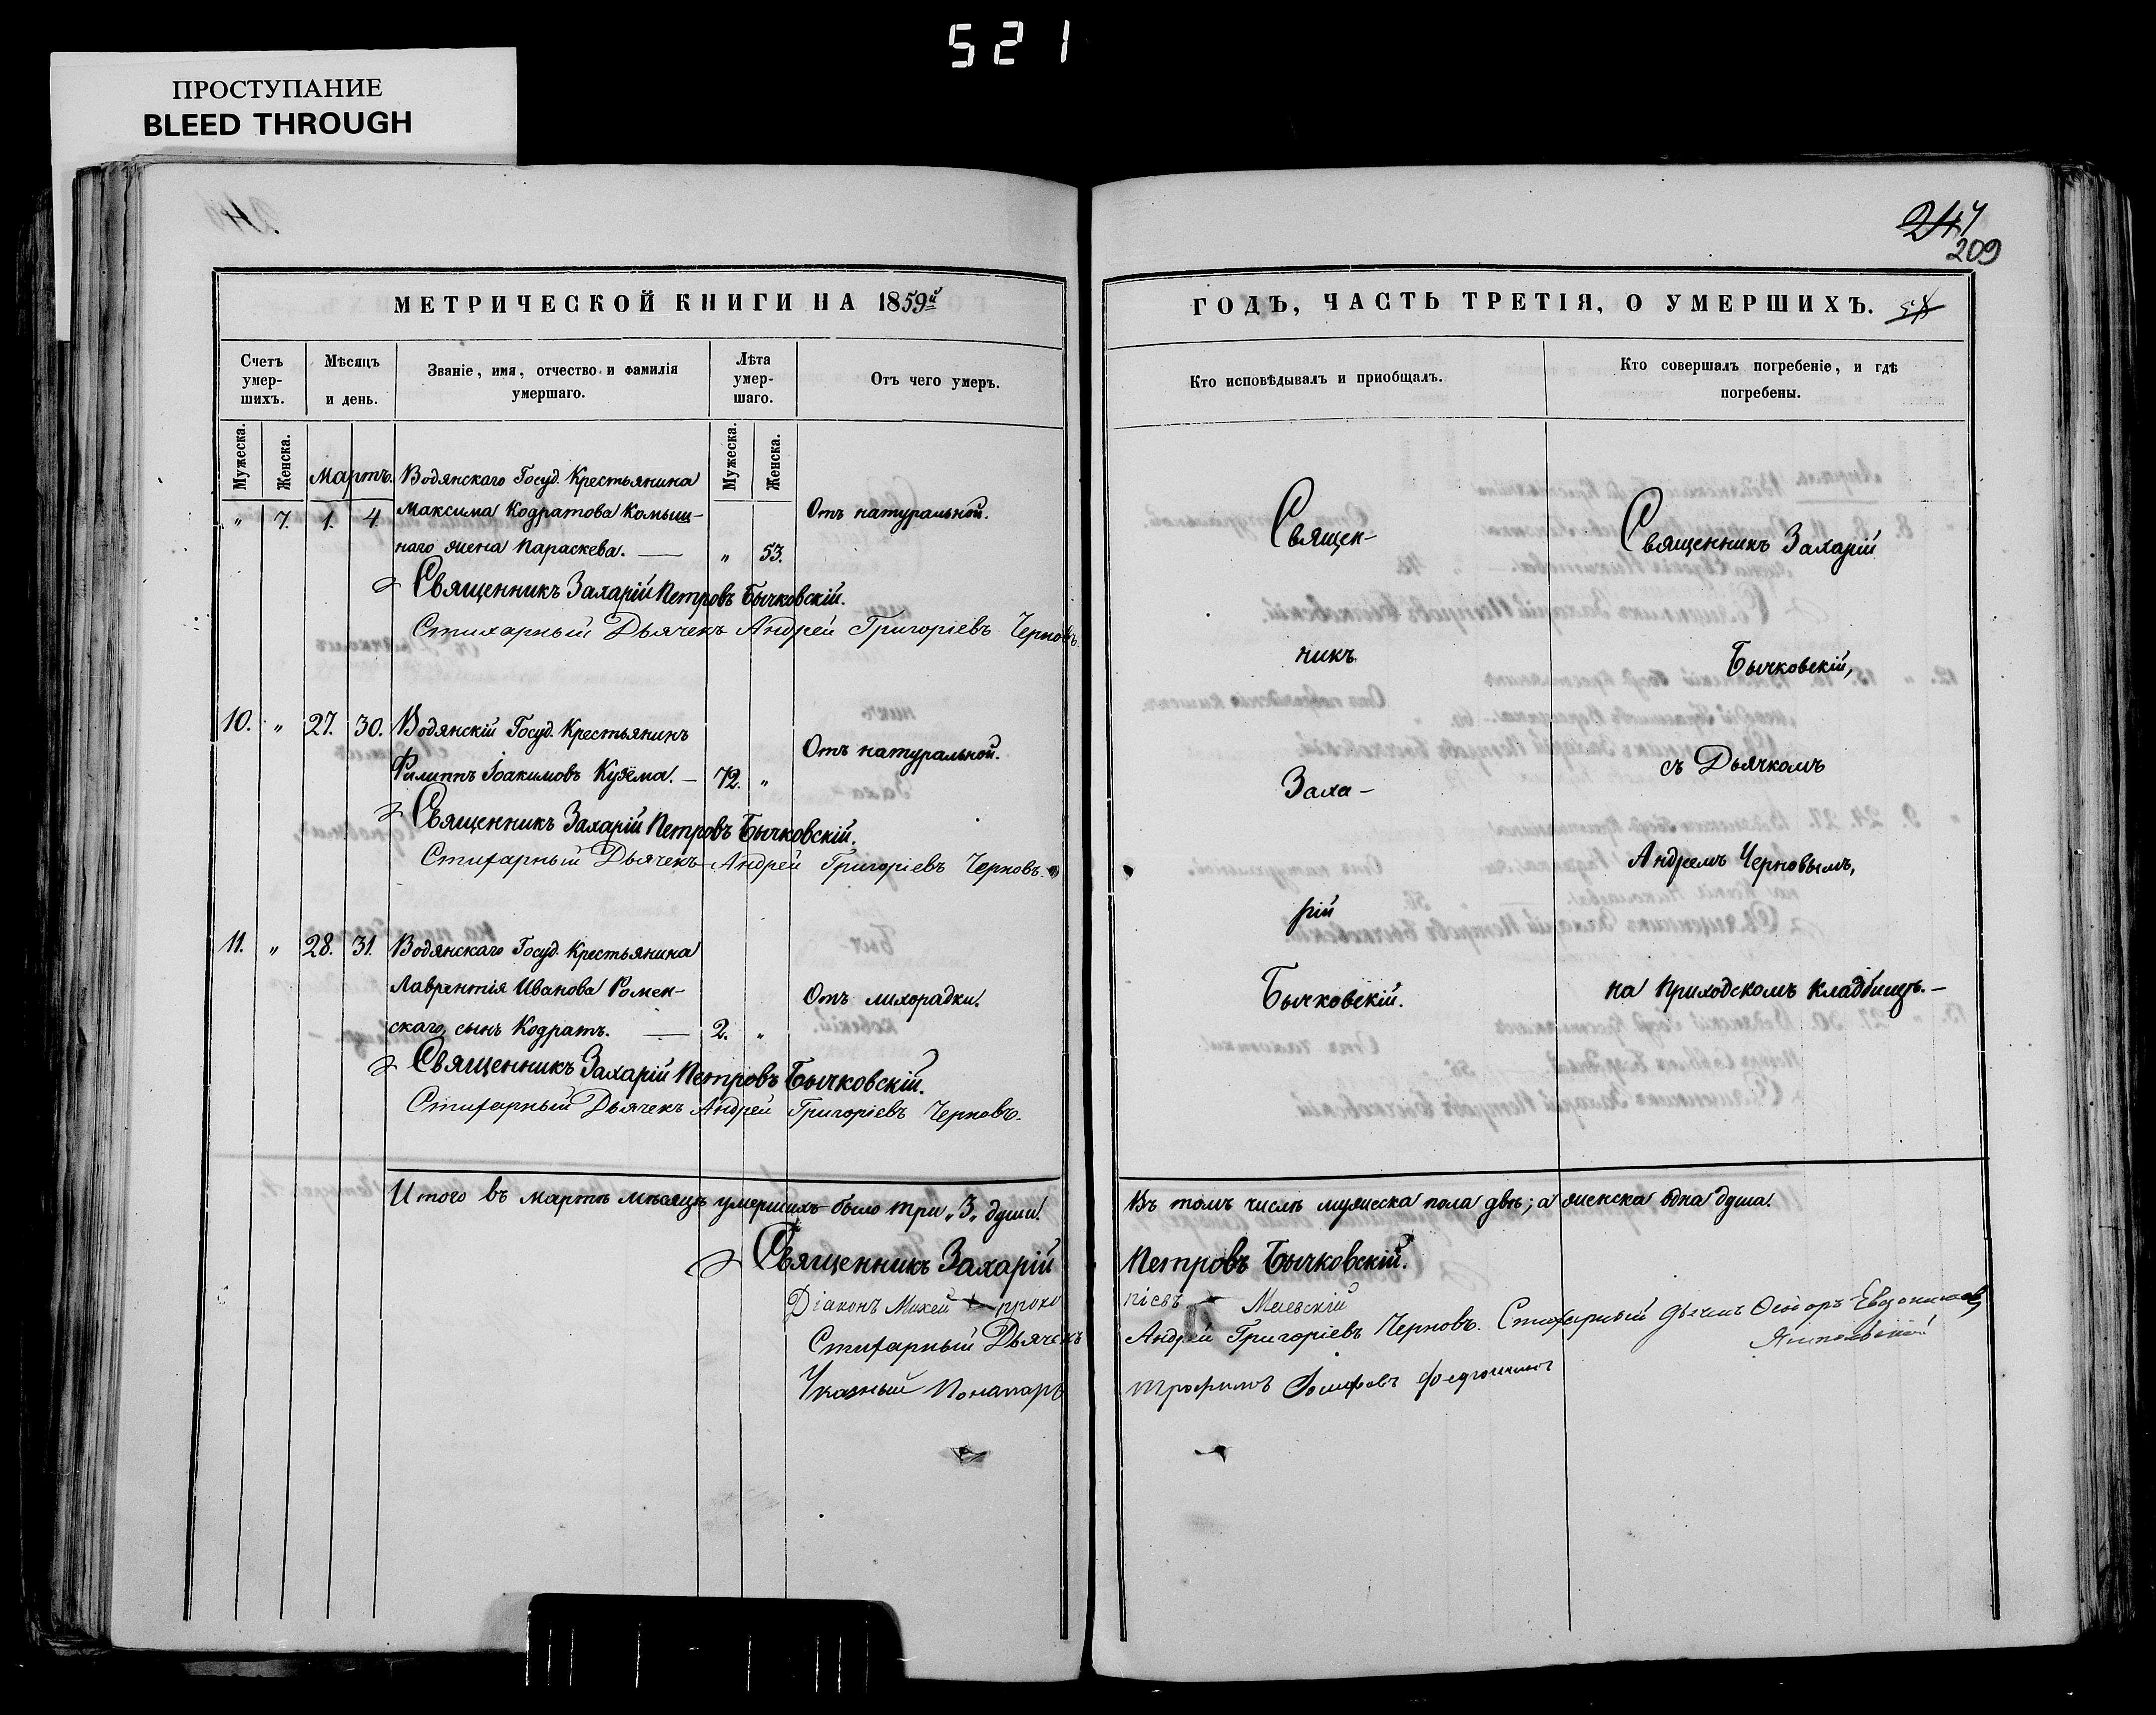 521
ПРОСТУПАНИЕ
BLEED THROUGH
247
209
МЕТРИЧЕСКОЙ КНИГИ НА 1859й
ГОДЪ, ЧАСТЬ ТРЕТІЯ, О УМЕРШИХЪ.
Счетъ умер-шихъ.
Мѣсяцъ и день.
Званіе, имя, отчество и фамилія умершаго.
Лѣта умер-шаго.
Отъ чего умеръ.
Кто исповѣдывалъ и приобщалъ.
Кто совершалъ погребеніе, и гдѣ погребены.
Мужеска.
Женска.
Мужеска.
Женска.
Мартъ. Водянскаго Госуд. Крестьянина
" 7. 1. 4. Максима Кодратова Комыш-
Отъ натуральной.
наго жена Параскева. — " 53.
Священникъ Захарій Петровъ Бычковскій.
Стихарный Дьячекъ Андрей Григоріевъ Черновъ
10. " 27. 30. Водянскій Госуд. Крестьянинъ
Отъ натуральной.
Филиппъ Іоакимовъ Кузема. — 72. "
Священникъ Захарій Петровъ Бычковскій.
Стихарный Дьячекъ Андрей Григоріевъ Черновъ.
11. " 28. 31. Водянскаго Госуд. Крестьянина
Лаврентія Иванова Ромен-
Отъ лихорадки.
скаго, сынъ Кодратъ. — 2. "
Священникъ Захарій Петровъ Бычковскій.
Стихарный Дьячекъ Андрей Григоріевъ Черновъ.
Священ-
никъ
Заха-
рій
Бычковскій.
Священникъ Захарій
Бычковскій,
съ Дьячкомъ
Андреемъ Черновымъ,
на приходскомъ кладбищѣ.—
Итого въ мартѣ мѣсяцѣ умершихъ было три „3„ души.
Въ томъ числѣ мужеска пола двѣ; а женска одна душа.
Священникъ Захарій Петровъ Бычковскій.
Діаконъ Михей Проко
піевъ Маевскій
Стихарный Дьячекъ Андрей Григоріевъ Черновъ. Стихарный Дьячекъ Ѳеодоръ
Указный Пономарь Трофимъ Іосифовъ